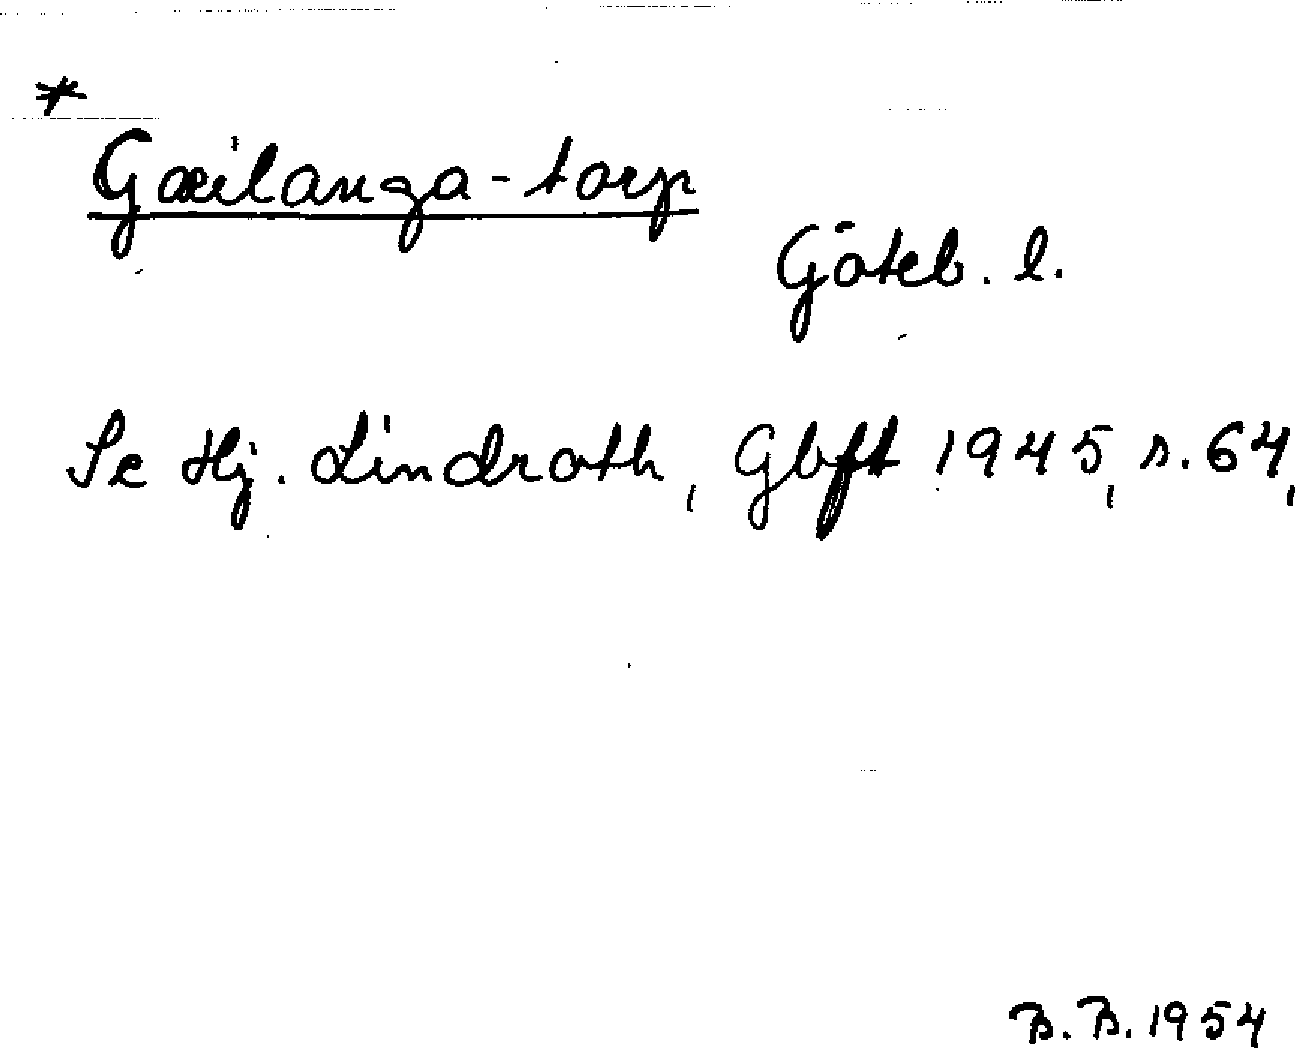 *
Gæilanga-torp
Göteb. l.
Se Hj. Lindroth, Gbft 1945, s. 64,
B. B. 1954